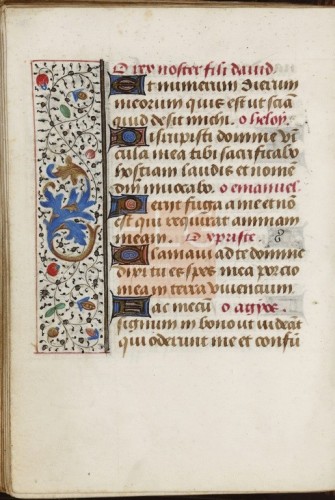 O rex noster fili david
Et numerum dierum
meorum quis est ut sciā
quid desit michi. o heloy.
Dirupisti domine vī
cula mea tibi sacrificabo
hostiam laudis et nomē
dm̄ invocabo. o emanuel
Perijt fuga a me et nō
est qui requirat animam
meam. O xpriste.
Clamavi ad te domine
dixi tu es spes mea porcio
mea in terra viventium
Fac mecū o agyos.
signum in bono ut videāt
qui oderunt me et confūn